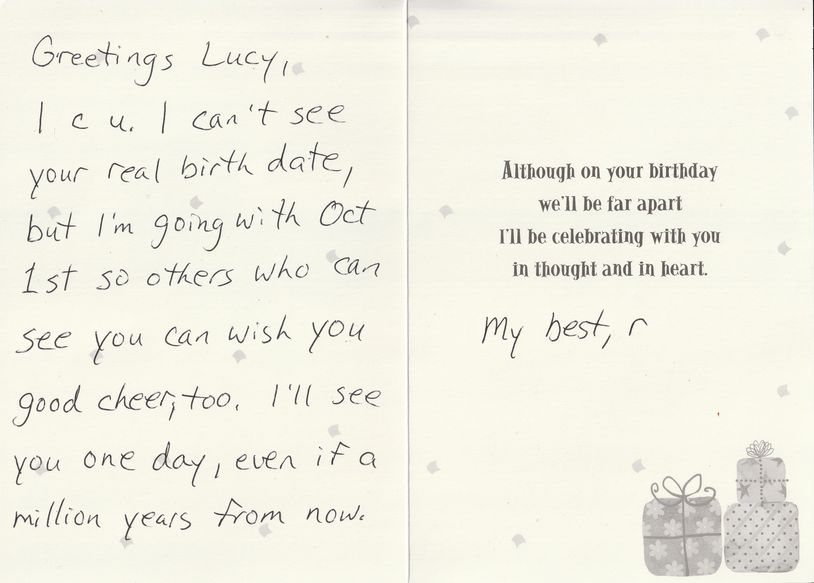 Greetings Lucy,
I c u. I can't see
your real birth date,
but I'm going with Oct
1st so others who can
see you can wish you
good cheer, too. I'll see
you one day, even if a
million years from now.
Although on your birthday
we'll be far apart
I'll be celebrating with you
in thought and in heart.
My best, r